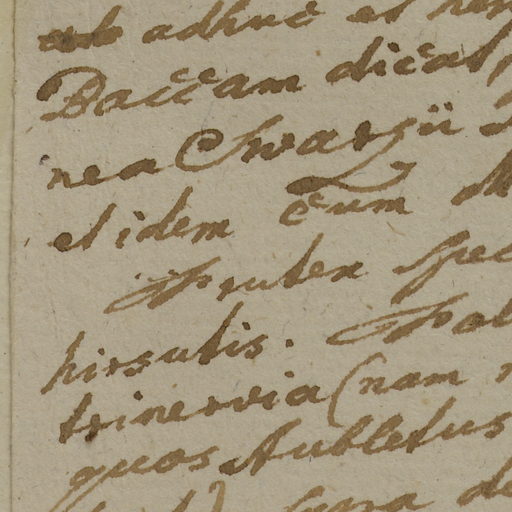 adhuc et
Baccam dicat
nea Swarzii
et idem cum M
Frutex spe
hirsutis. Fol
trinervia (nam
quos Aubletus
supra de